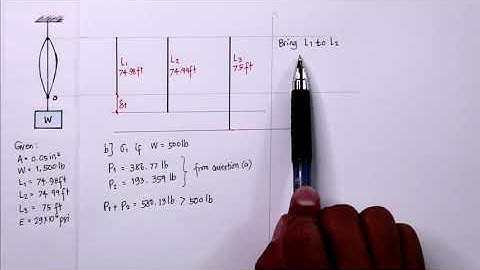 Bring L₁ to L₂
L₁
74.98ft
L₂
74.99ft
L₃
75ft
δ₁
W
Given:
A = 0.05 in²
W = 1,500 lb
L₁ = 74.98ft
L₂ = 74.99 ft
L₃ = 75 ft
E = 29×10⁶ psi
b] σ₁ if W = 500 lb
P₁ = 386.77 lb
P₂ = 193.359 lb
from question (a)
P₁ + P₂ = 580.13 lb > 500 lb